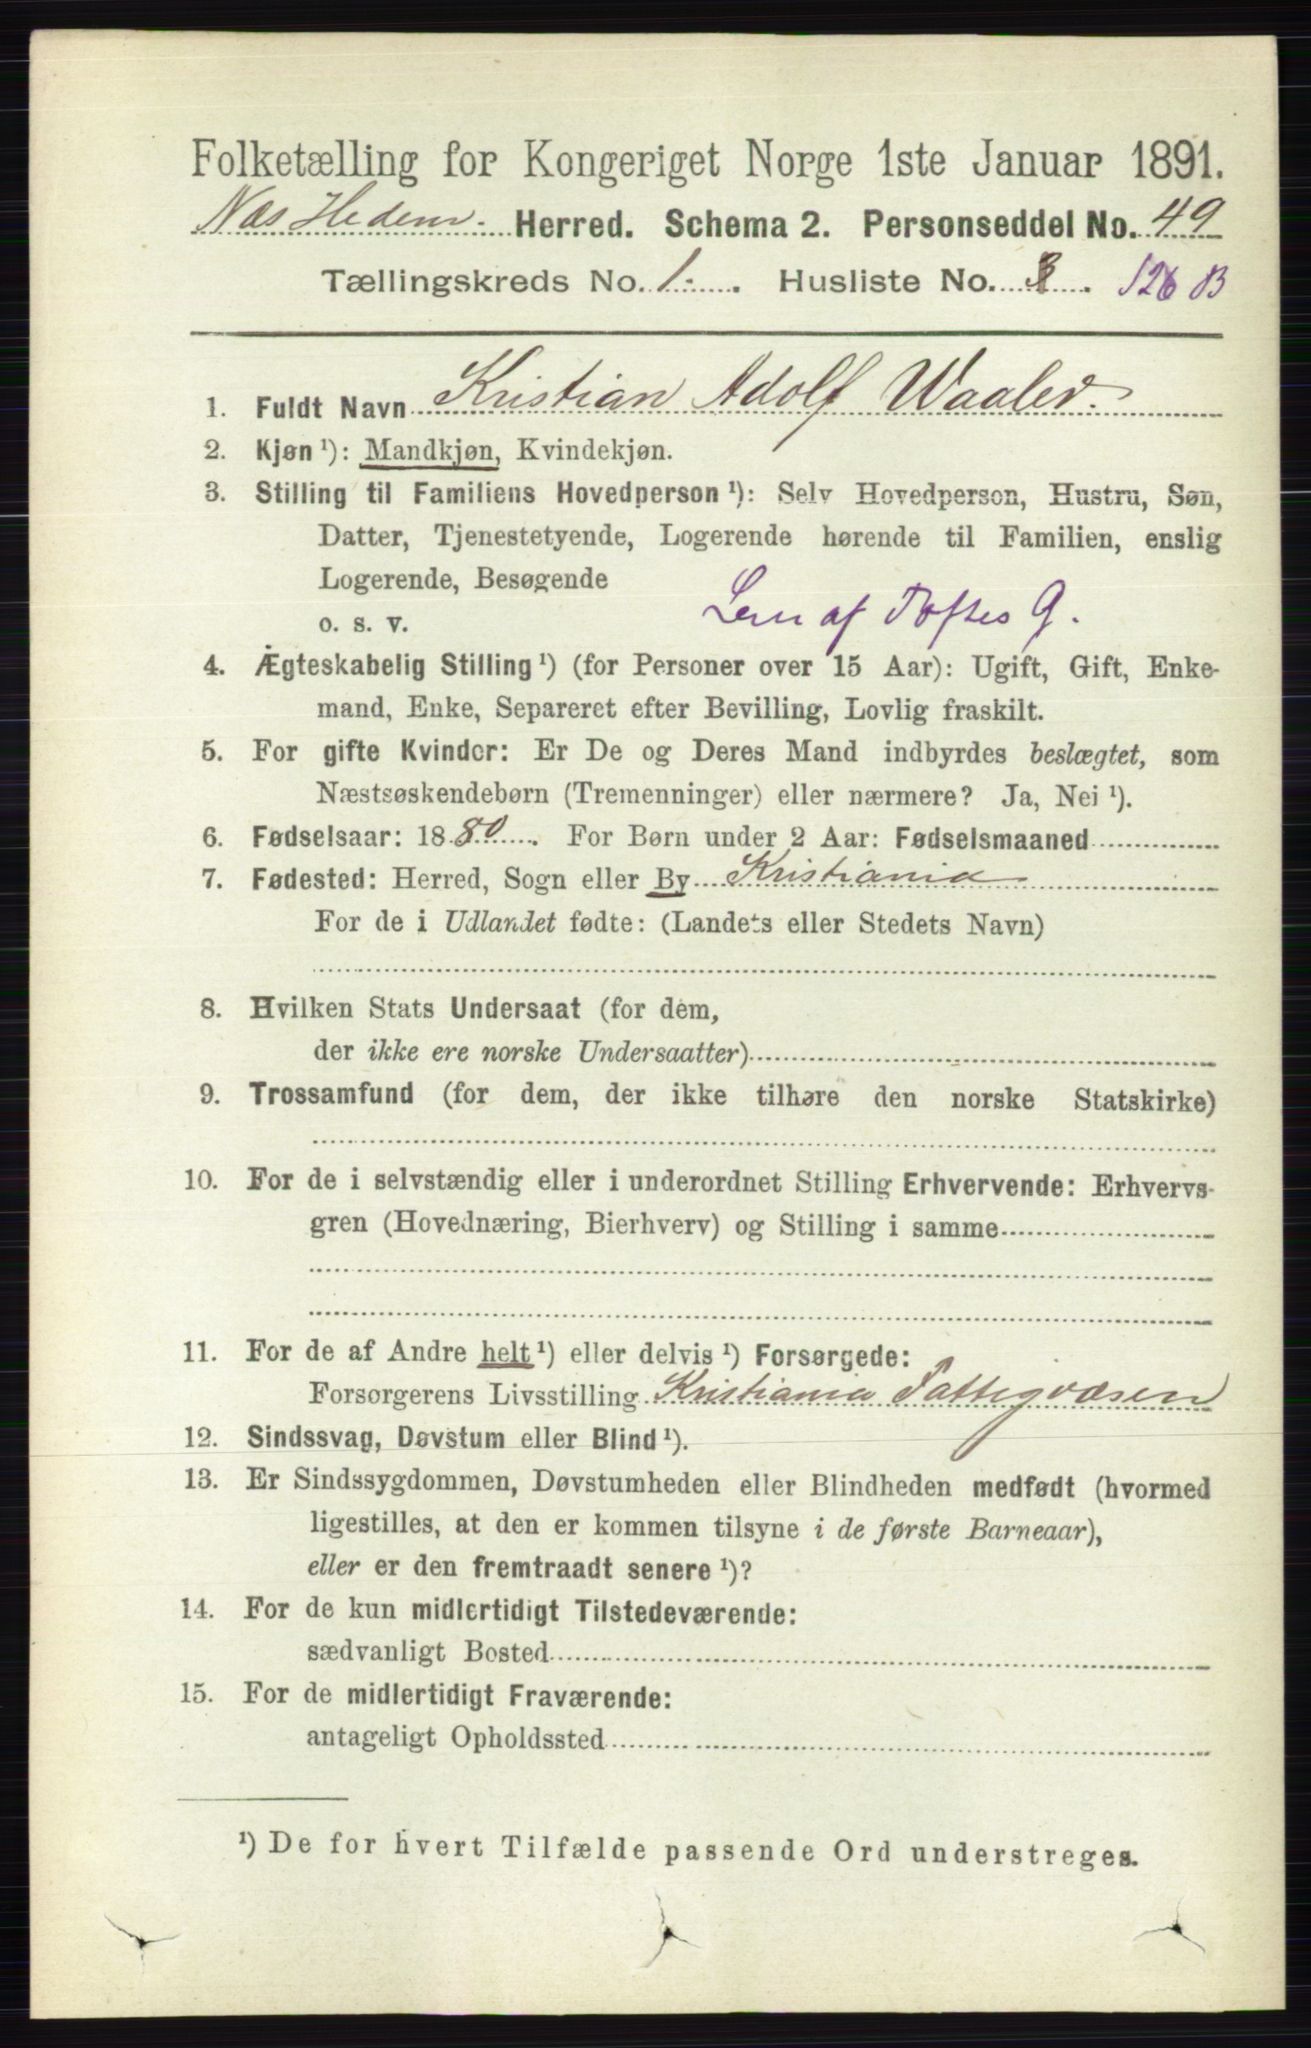 Folketælling for Kongeriget Norge 1ste Januar 1891.
Næs Hedem. Herred. Schema 2. Personseddel No. 49
Tællingskreds No. 1. Husliste No. 126 B
1. Fuldt Navn Kristian Adolf Waaler.
2. Kjøn ¹): Mandkjøn, Kvindekjøn.
3. Stilling til Familiens Hovedperson ¹): Selv Hovedperson, Hustru, Søn,
Datter, Tjenestetyende, Logerende hørende til Familien, enslig
Logerende, Besøgende
o. s. v. Lem af Toftes G.
4. Ægteskabelig Stilling ¹) (for Personer over 15 Aar): Ugift, Gift, Enke-
mand, Enke, Separeret efter Bevilling, Lovlig fraskilt.
5. For gifte Kvinder: Er De og Deres Mand indbyrdes beslægtet, som
Næstsøskendebørn (Tremenninger) eller nærmere? Ja, Nei ¹).
6. Fødselsaar: 1880. For Børn under 2 Aar: Fødselsmaaned
7. Fødested: Herred, Sogn eller By Kristiania
For de i Udlandet fødte: (Landets eller Stedets Navn)
8. Hvilken Stats Undersaat (for dem,
der ikke ere norske Undersaatter)
9. Trossamfund (for dem, der ikke tilhøre den norske Statskirke)
10. For de i selvstændig eller i underordnet Stilling Erhvervende: Erhvervs-
gren (Hovednæring, Bierhverv) og Stilling i samme
11. For de af Andre helt ¹) eller delvis ¹) Forsørgede:
Forsørgerens Livsstilling Kristiania Fattigvæsen
12. Sindssvag, Døvstum eller Blind ¹).
13. Er Sindssygdommen, Døvstumheden eller Blindheden medfødt (hvormed
ligestilles, at den er kommen tilsyne i de første Barneaar),
eller er den fremtraadt senere ¹)?
14. For de kun midlertidigt Tilstedeværende:
sædvanligt Bosted
15. For de midlertidigt Fraværende:
antageligt Opholdssted
¹) De for hvert Tilfælde passende Ord understreges.